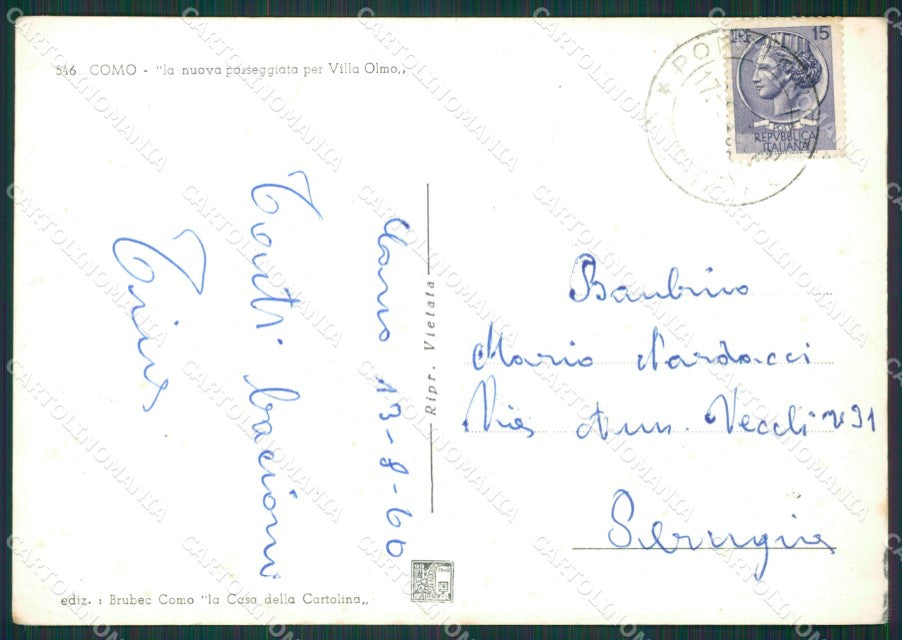 546 COMO - "la nuova passeggiata per Villa Olmo„
LIRE 15
POSTE
REPVBBLICA
ITALIANA
Como 13-8-60
Tanti bacioni
Ripr. Vietata
Bambino
Mario Nardacci
Via Ann. Vecchi n 31
Perugia
ediz. : Brubec Como "la Casa della Cartolina„
CARTOLINOMANIA